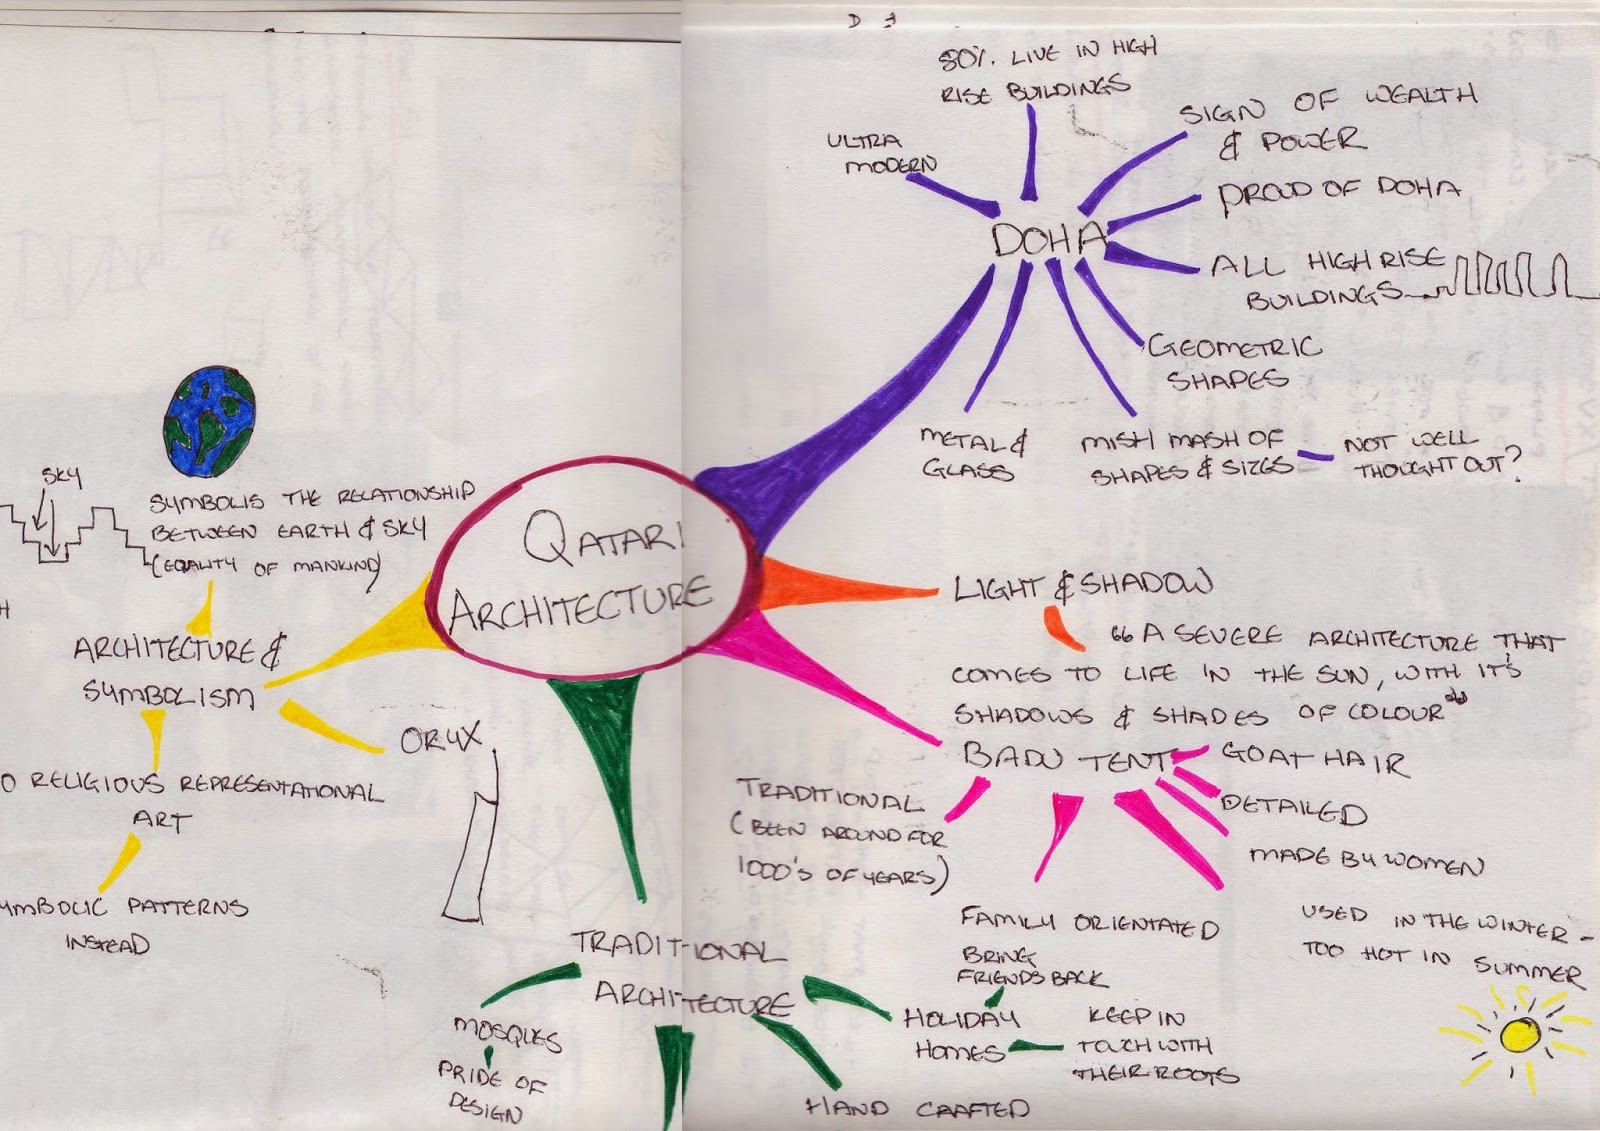 QATARI
ARCHITECTURE
DOHA
ULTRA
MODERN
80% LIVE IN HIGH
RISE BUILDINGS
SIGN OF WEALTH
& POWER
PROUD OF DOHA
ALL HIGH RISE
BUILDINGS
GEOMETRIC
SHAPES
MISH MASH OF
SHAPES & SIZES
NOT WELL
THOUGHT OUT?
METAL &
GLASS
LIGHT & SHADOW
"A SEVERE ARCHITECTURE THAT
COMES TO LIFE IN THE SUN, WITH IT'S
SHADOWS & SHADES OF COLOUR"
BADU TENT
GOAT HAIR
DETAILED
MADE BY WOMEN
USED IN THE WINTER -
TOO HOT IN SUMMER
FAMILY ORIENTATED
TRADITIONAL
(BEEN AROUND FOR
1000'S OF YEARS)
TRADITIONAL
ARCHITECTURE
HOLIDAY
HOMES
BRING
FRIENDS BACK
KEEP IN
TOUCH WITH
THEIR ROOTS
HAND CRAFTED
MOSQUES
PRIDE OF
DESIGN
ARCHITECTURE &
SYMBOLISM
SYMBOLIS THE RELATIONSHIP
BETWEEN EARTH & SKY
(EQALITY OF MANKIND)
SKY
ORYX
O RELIGIOUS REPRESENTATIONAL
ART
YMBOLIC PATTERNS
INSTEAD